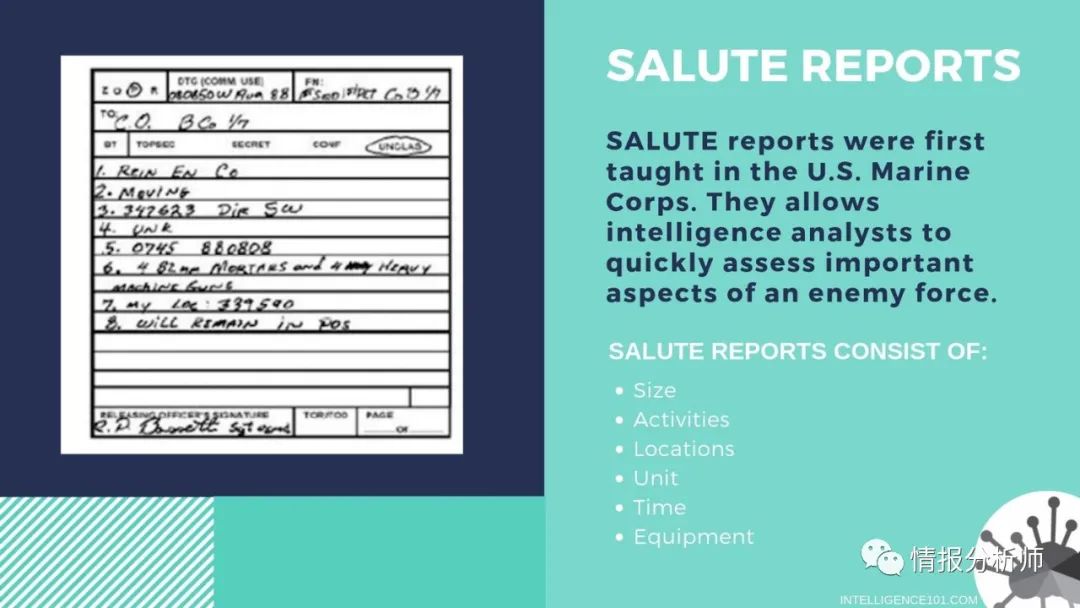 Z O P R
DTG (COMM. USE)
FN:
080850W Aug 88
Co B 1/7
TO:
C.O. B Co 1/7
BT TOPSEC SECRET CONF UNCLAS
1. REIN EN Co
2. MOVING
3. 347623 DIR SW
4. UNK
5. 0745 880808
6. 4 82mm MORTARS and 4 HEAVY
MACHINE GUNS
7. MY LOC: 339590
8. WILL REMAIN IN POS
RELEASING OFFICER'S SIGNATURE
TOR/TOD
PAGE
OF
SALUTE REPORTS
SALUTE reports were first
taught in the U.S. Marine
Corps. They allows
intelligence analysts to
quickly assess important
aspects of an enemy force.
SALUTE REPORTS CONSIST OF:
• Size
• Activities
• Locations
• Unit
• Time
• Equipment
情报分析师
INTELLIGENCE101.COM